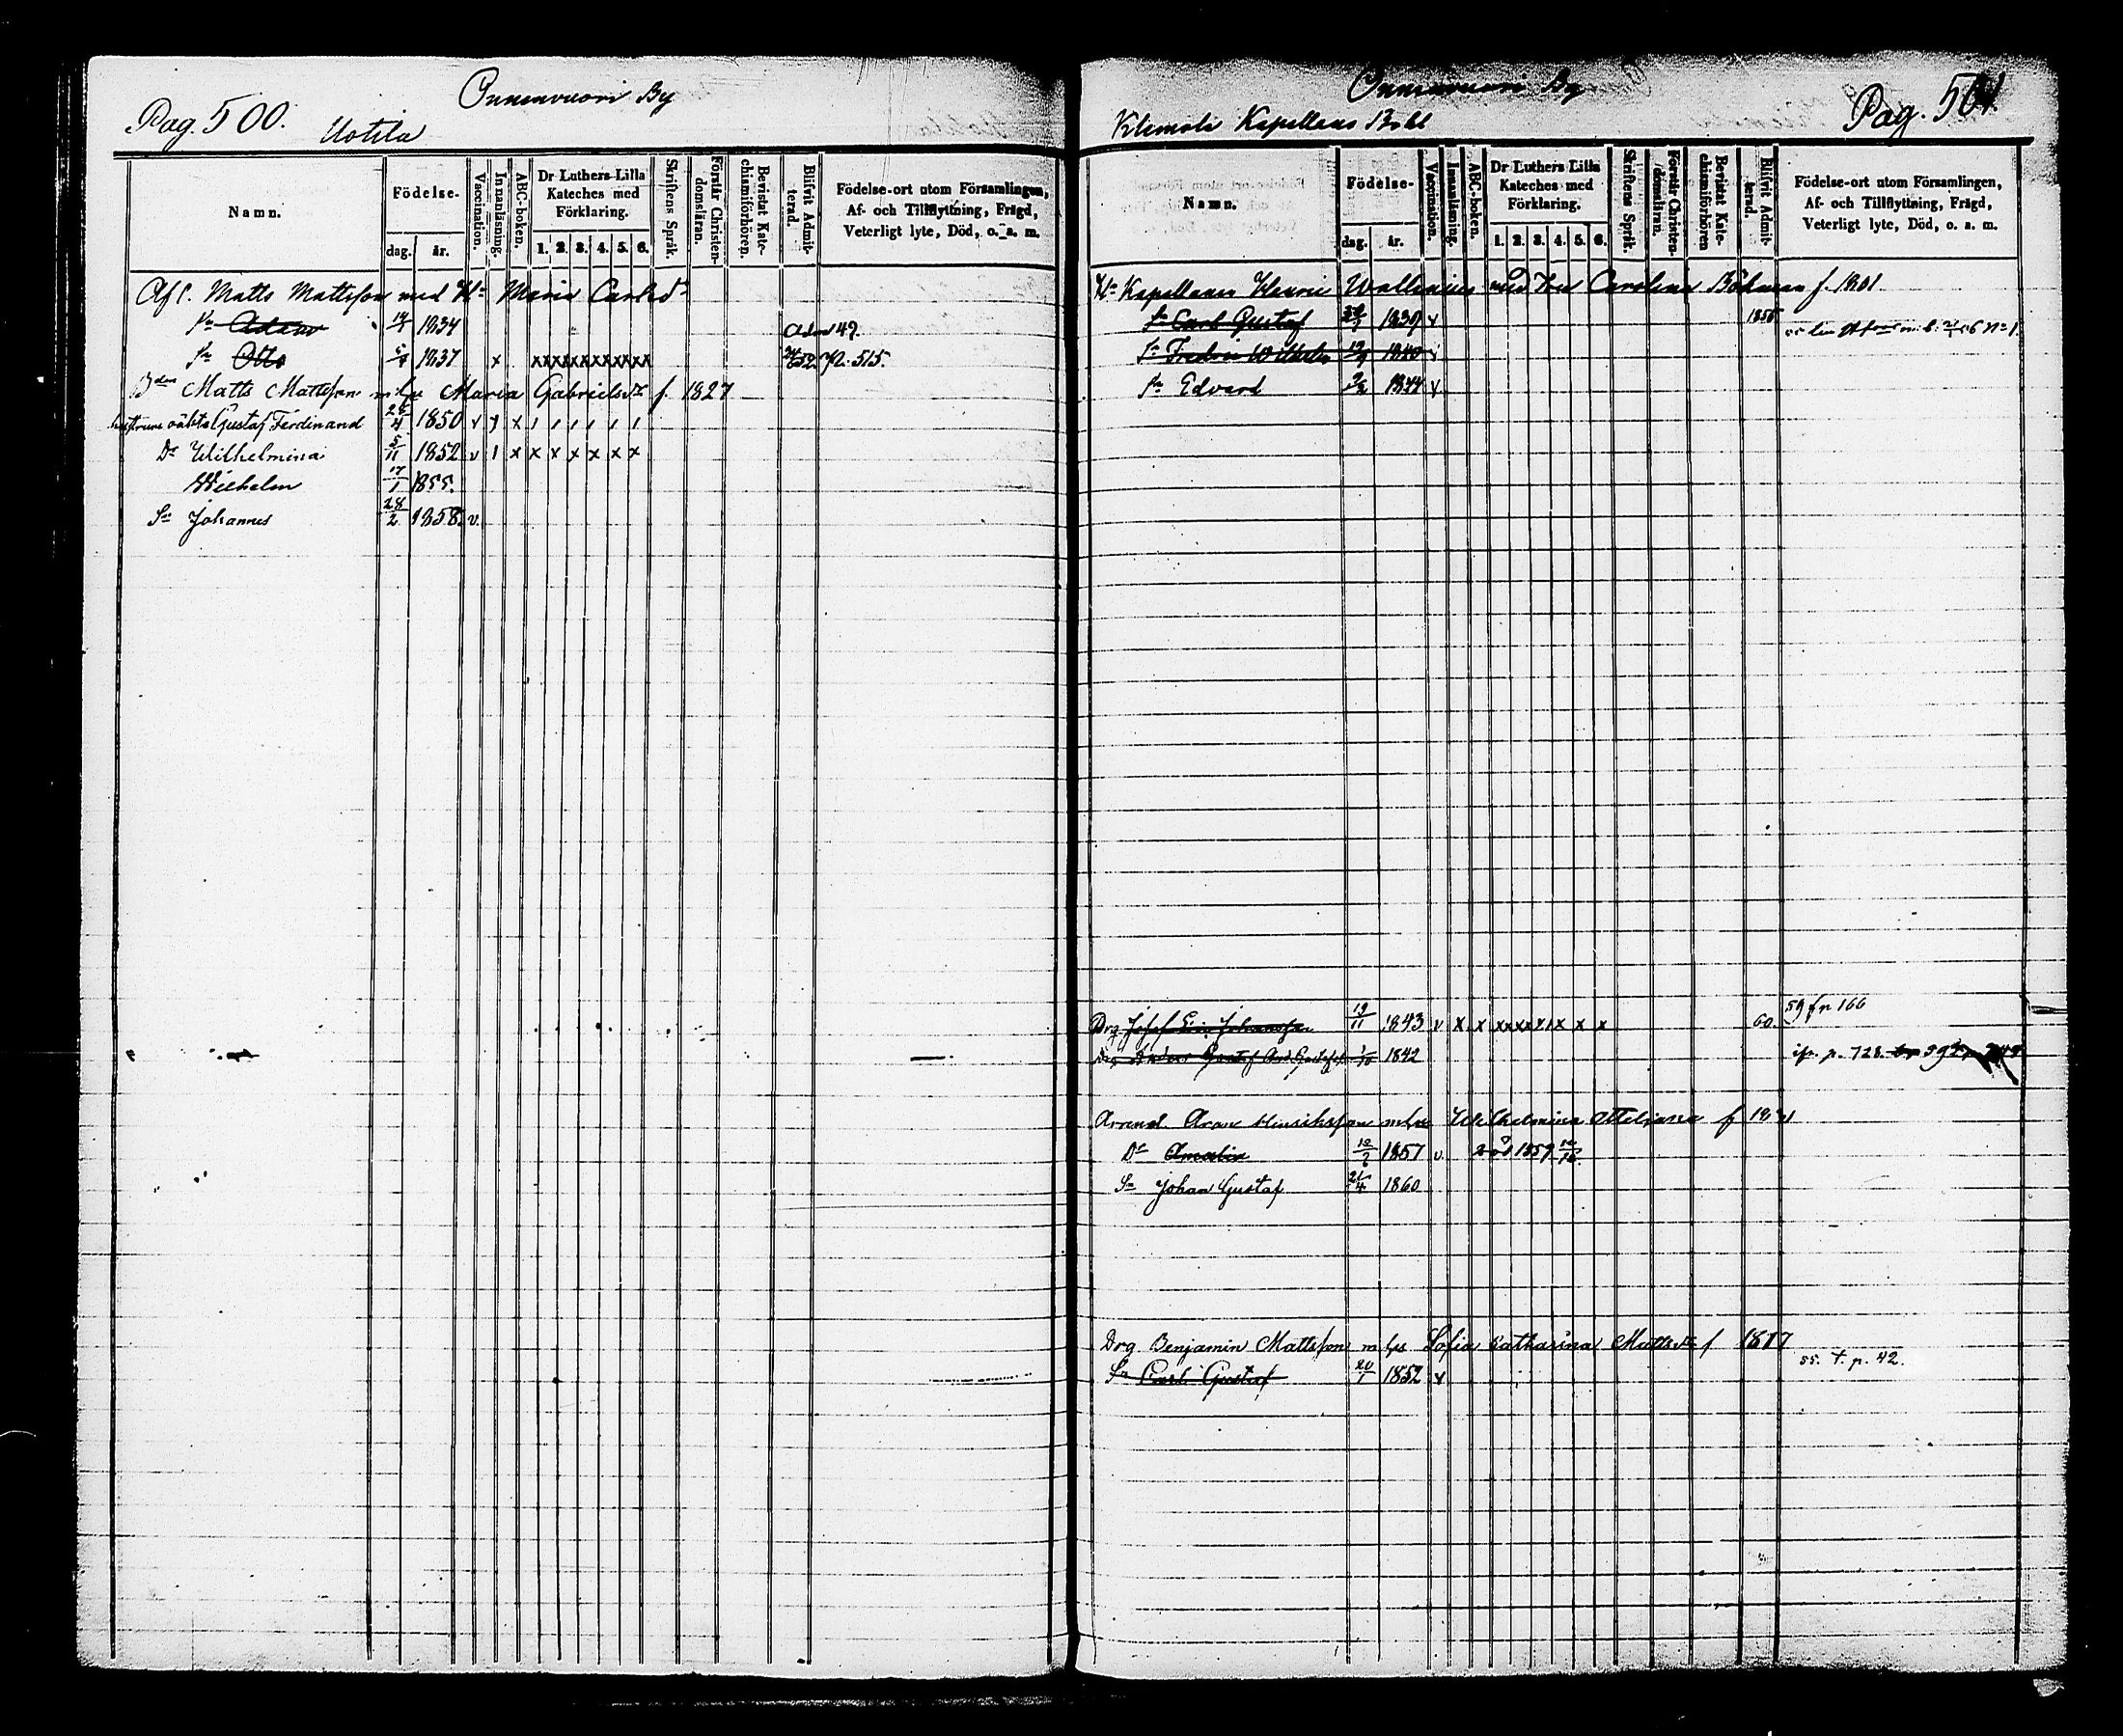 Pag. 500.
Onnenvuori By
Uotila
Namn.
Födelse-
dag.
år.
Vaccination.
Innanläsning.
ABC-boken.
Dr Luthers Lilla Kateches med Förklaring.
1. 2. 3. 4. 5. 6.
Skriftens Språk.
Förstår Christendomsläran.
Bevistat Katechismiförhören.
Blifvit Admitterad.
Födelse-ort utom Församlingen, Af- och Tillflyttning, Frägd, Veterligt lyte, Död, o. a. m.
Afl. Matts Mattsson med H:u Maria Carlsd:r
Sn Adam 1834 Adm 49.
Sn Otto 1837 x xxxxxxxxxxx 52 p. 515.
Bden Matts Mattsson m hu Maria Gabrielsdr f. 1827
hustruns oäkta Gustaf Ferdinand 28/4 1850 v
Dr Wilhelmina 5/11 1852 v 1 x x x x x x x
Wilhelm 17/1 1855.
Sn Johannes 28/2 1858. v.
Onnenvuori By
Klemola Kapellans Bohl
Pag. 501.
Namn.
Födelse-
dag.
år.
Vaccination.
Innanläsning.
ABC-boken.
Dr Luthers Lilla Kateches med Förklaring.
1. 2. 3. 4. 5. 6.
Skriftens Språk.
Förstår Christendomsläran.
Bevistat Katechismiförhören
Blifvit Admitterad.
Födelse-ort utom Församlingen, Af- och Tillflyttning, Frägd, Veterligt lyte, Död, o. a. m.
Hr Kapellanen Henric Wallenius med Fru Carolina Böhman f. 1801
Sn Carl Gustaf 1839 v 1856
Sn Fredric Wilhelm 1840 v
Sn Edvard 1844 v
Drg Josef 19/11 1843 v x x xxxxxx x x 60. 59 fr 166
Drg Gustaf 1842 p. 728.
Arrend. Hinriksson m hu Wilhelmina f
Dr Amalia 1857 v. död 1859
Sn Johan Gustaf 1860
Drg Benjamin Mattsson m hs Sofia Catharina Mattsdr f 1817
Sn Carl Gustaf 20/1 1852 v 55. t. p. 42.